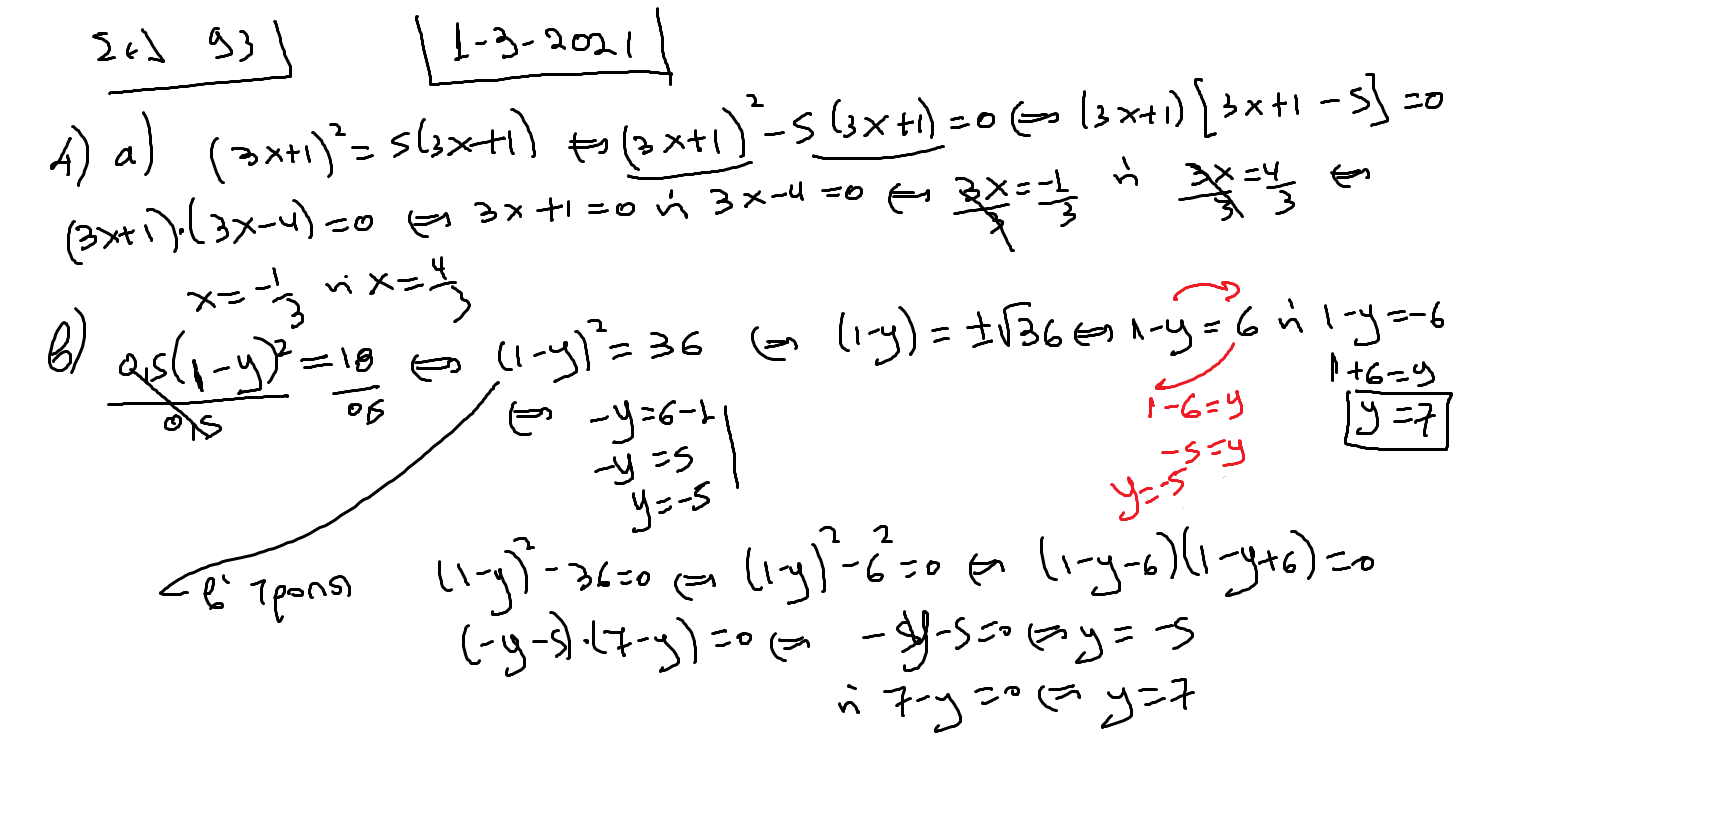 Σελ 93 1-3-2021
4) α) (3x+1)² = 5(3x+1) ⇔ (3x+1)² - 5(3x+1) = 0 ⇔ (3x+1)[3x+1-5] = 0
(3x+1)·(3x-4) = 0 ⇔ 3x+1 = 0 ή 3x-4 = 0 ⇔ 3x/3 = -1/3 ή 3x/3 = 4/3 ⇔
x = -1/3 ή x = 4/3
β) 0,5(1-y)²/0,5 = 18/05 ⇔ (1-y)² = 36 ⇔ (1-y) = ±√36 ⇔ 1-y = 6 ή 1-y = -6
⇔ -y = 6-1 1-6 = y 1+6 = y
-y = 5 -5 = y y = 7
y = -5 y = -5
β' τροπος (1-y)² - 36 = 0 ⇔ (1-y)² - 6² = 0 ⇔ (1-y-6)(1-y+6) = 0
(-y-5)·(7-y) = 0 ⇔ -y-5 = 0 ⇔ y = -5
ή 7-y = 0 ⇔ y = 7